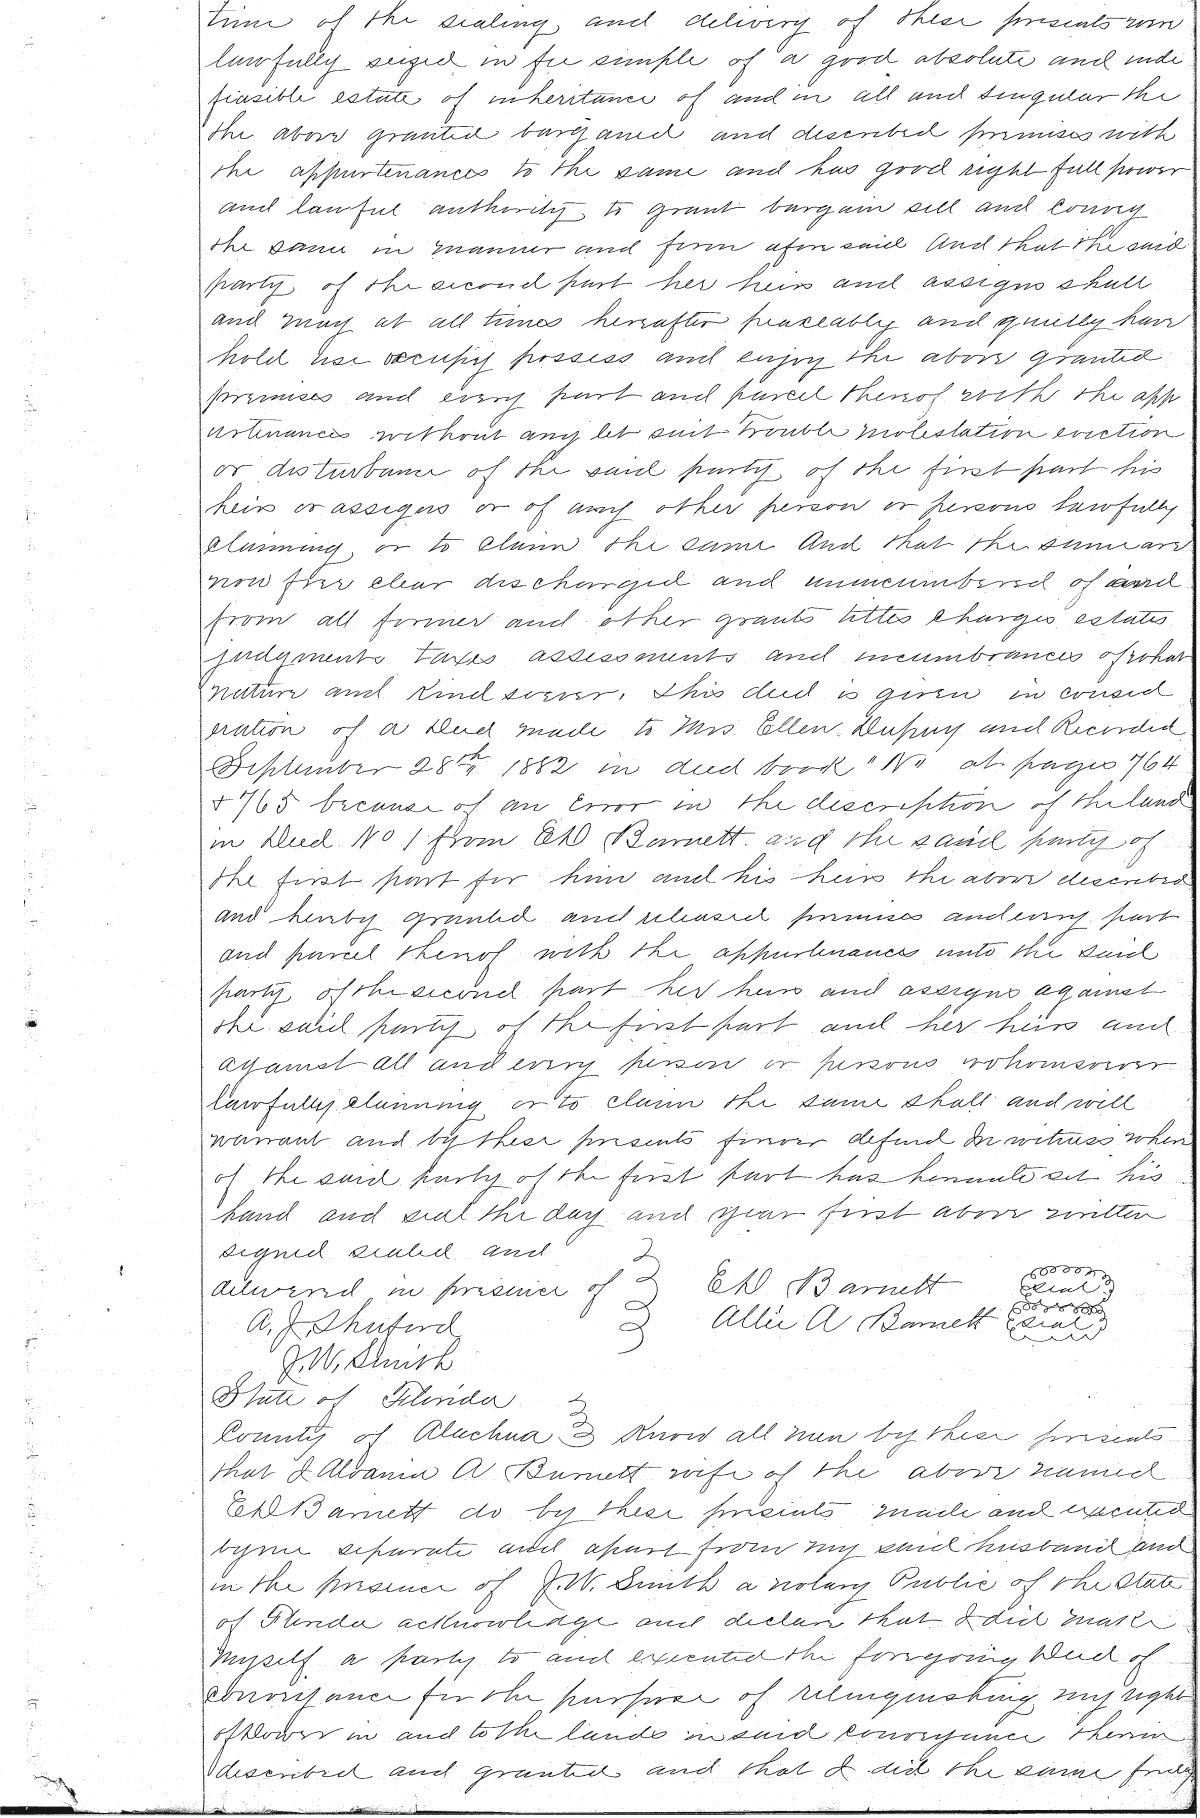 time of the sealing and delivery of these presents was
lawfully seized in fee simple of a good absolute and inde
feasible estate of inheritance of and in all and singular the
the above granted bargained and described premises with
the appurtenances to the same and has good right full power
and lawful authority to grant bargain sell and convey
the same in manner and form aforesaid And that the said
party of the second part her heirs and assigns shall
and may at all times hereafter peaceably and quietly have
hold use occupy possess and enjoy the above granted
premises and every part and parcel thereof with the app
urtenances without any let suit trouble molestation eviction
or disturbance of the said party of the first part his
heirs or assigns or of any other person or persons lawfully
claiming or to claim the same And that the same are
now free clear discharged and unincumbered of and
from all former and other grants titles charges estates
judgments taxes assessments and incumbrances of what
nature and kind soever. This deed is given in consid
eration of a Deed made to Mrs Ellen Dupuy and Recorded
September 28th 1882 in deed book "N" at pages 764
& 765 because of an Error in the description of the land
in Deed No 1 from Ed Barnett and the said party of
the first part for him and his heirs the above described
and hereby granted and released premises and every part
and parcel thereof with the appurtenances unto the said
party of the second part her heirs and assigns against
the said party of the first part and her heirs and
against all and every person or persons whomsoever
lawfully claiming or to claim the same shall and will
warrant and by these presents forever defend In witness where
of the said party of the first part has hereunto set his
hand and seal the day and year first above written
signed sealed and
delivered in presence of Ed Barnett seal
A. J. Shuford Allie A Barnett seal
J. W. Smith
State of Florida
County of Alachua Know all men by these presents
that I Albania A Barnett wife of the above named
Ed Barnett do by these presents made and executed
by me separate and apart from my said husband and
in the presence of J. W. Smith a notary Public of the State
of Florida acknowledge and declare that I did make
myself a party to and executed the foregoing Deed of
conveyance for the purpose of relinquishing my right
of Dower in and to the lands in said conveyance therein
described and granted and that I did the same freely